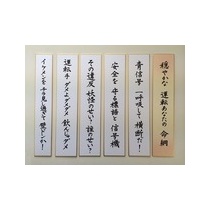 穏やかな 運転あなたの 命綱
青信号 一呼吸して 横断だ!
安全を 守る標語と 信号機
その速度 妖怪のせい?誰のせい?
運転手 ダメよダメダメ 飲んじゃダメ
イケメンを チラ見し過ぎて